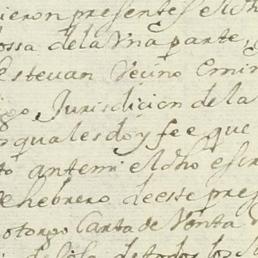 ieron presentes el dho
ossa de la Una parte,
estevan Vecino
go Jurisdicion de la
quales doy fee que
to antemi el dho
de hebrero de este pres
otorgo Carta de Venta
de todos los